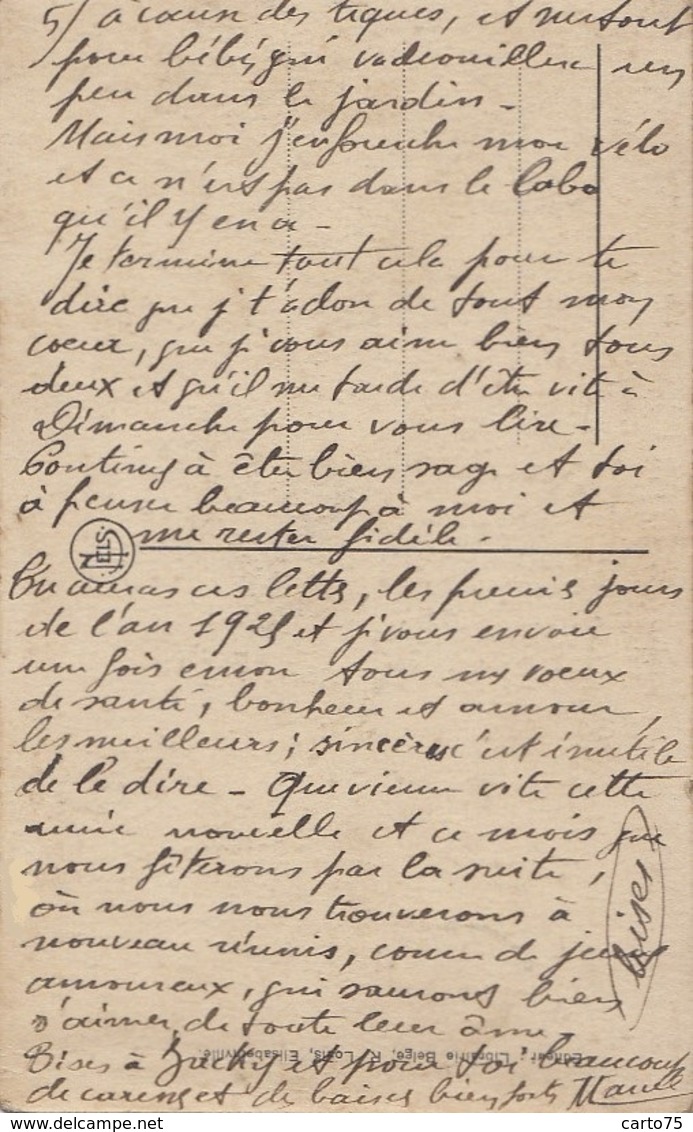 5/ à cause des tiques, et surtout
pour bébé qui vadrouillera un
peu dans le jardin -
Mais moi j'enfourche mon vélo
et ce n'est pas dans le labo
qu'il y en a -
Je termine tout cela pour te
dire que je t'adore de tout mon
coeur, que je vous aime bien tous
deux et qu'il me tarde d'être vite à
Dimanche pour vous lire -
Continue à être bien sage et toi
à penser beaucoup à moi et
me rester fidèle -
NELS
Tu auras ces letts, les premiers jours
de l'an 1925 et je vous envoie
une fois encore tous mes voeux
de santé, bonheur et amour,
les meilleurs; sincères c'est inutile
de le dire - Que vienne vite cette
année nouvelle et ce mois que
nous fêterons par la suite,
où nous nous trouverons à
nouveau réunis, comme de jeunes
amoureux, qui sauront bien
s'aimer de toute leur âme -
Bises à Jacky et pour toi beaucoup
de caresses et de baises bien forts Marcel
bises
Editeur: Librairie Belge, R. Louis, Elisabethville.
carto75